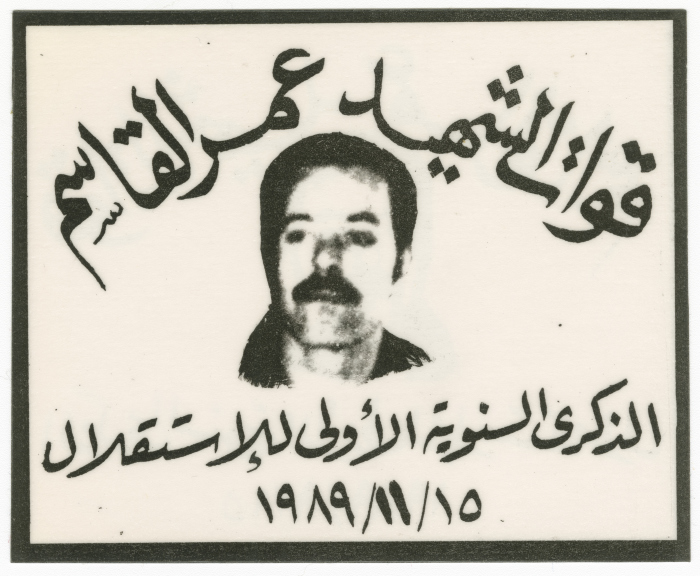 قوات الشهيد عمر القاسم
الذكرى السنوية الأولى للإستقلال
١٩٨٩/١١/١٥